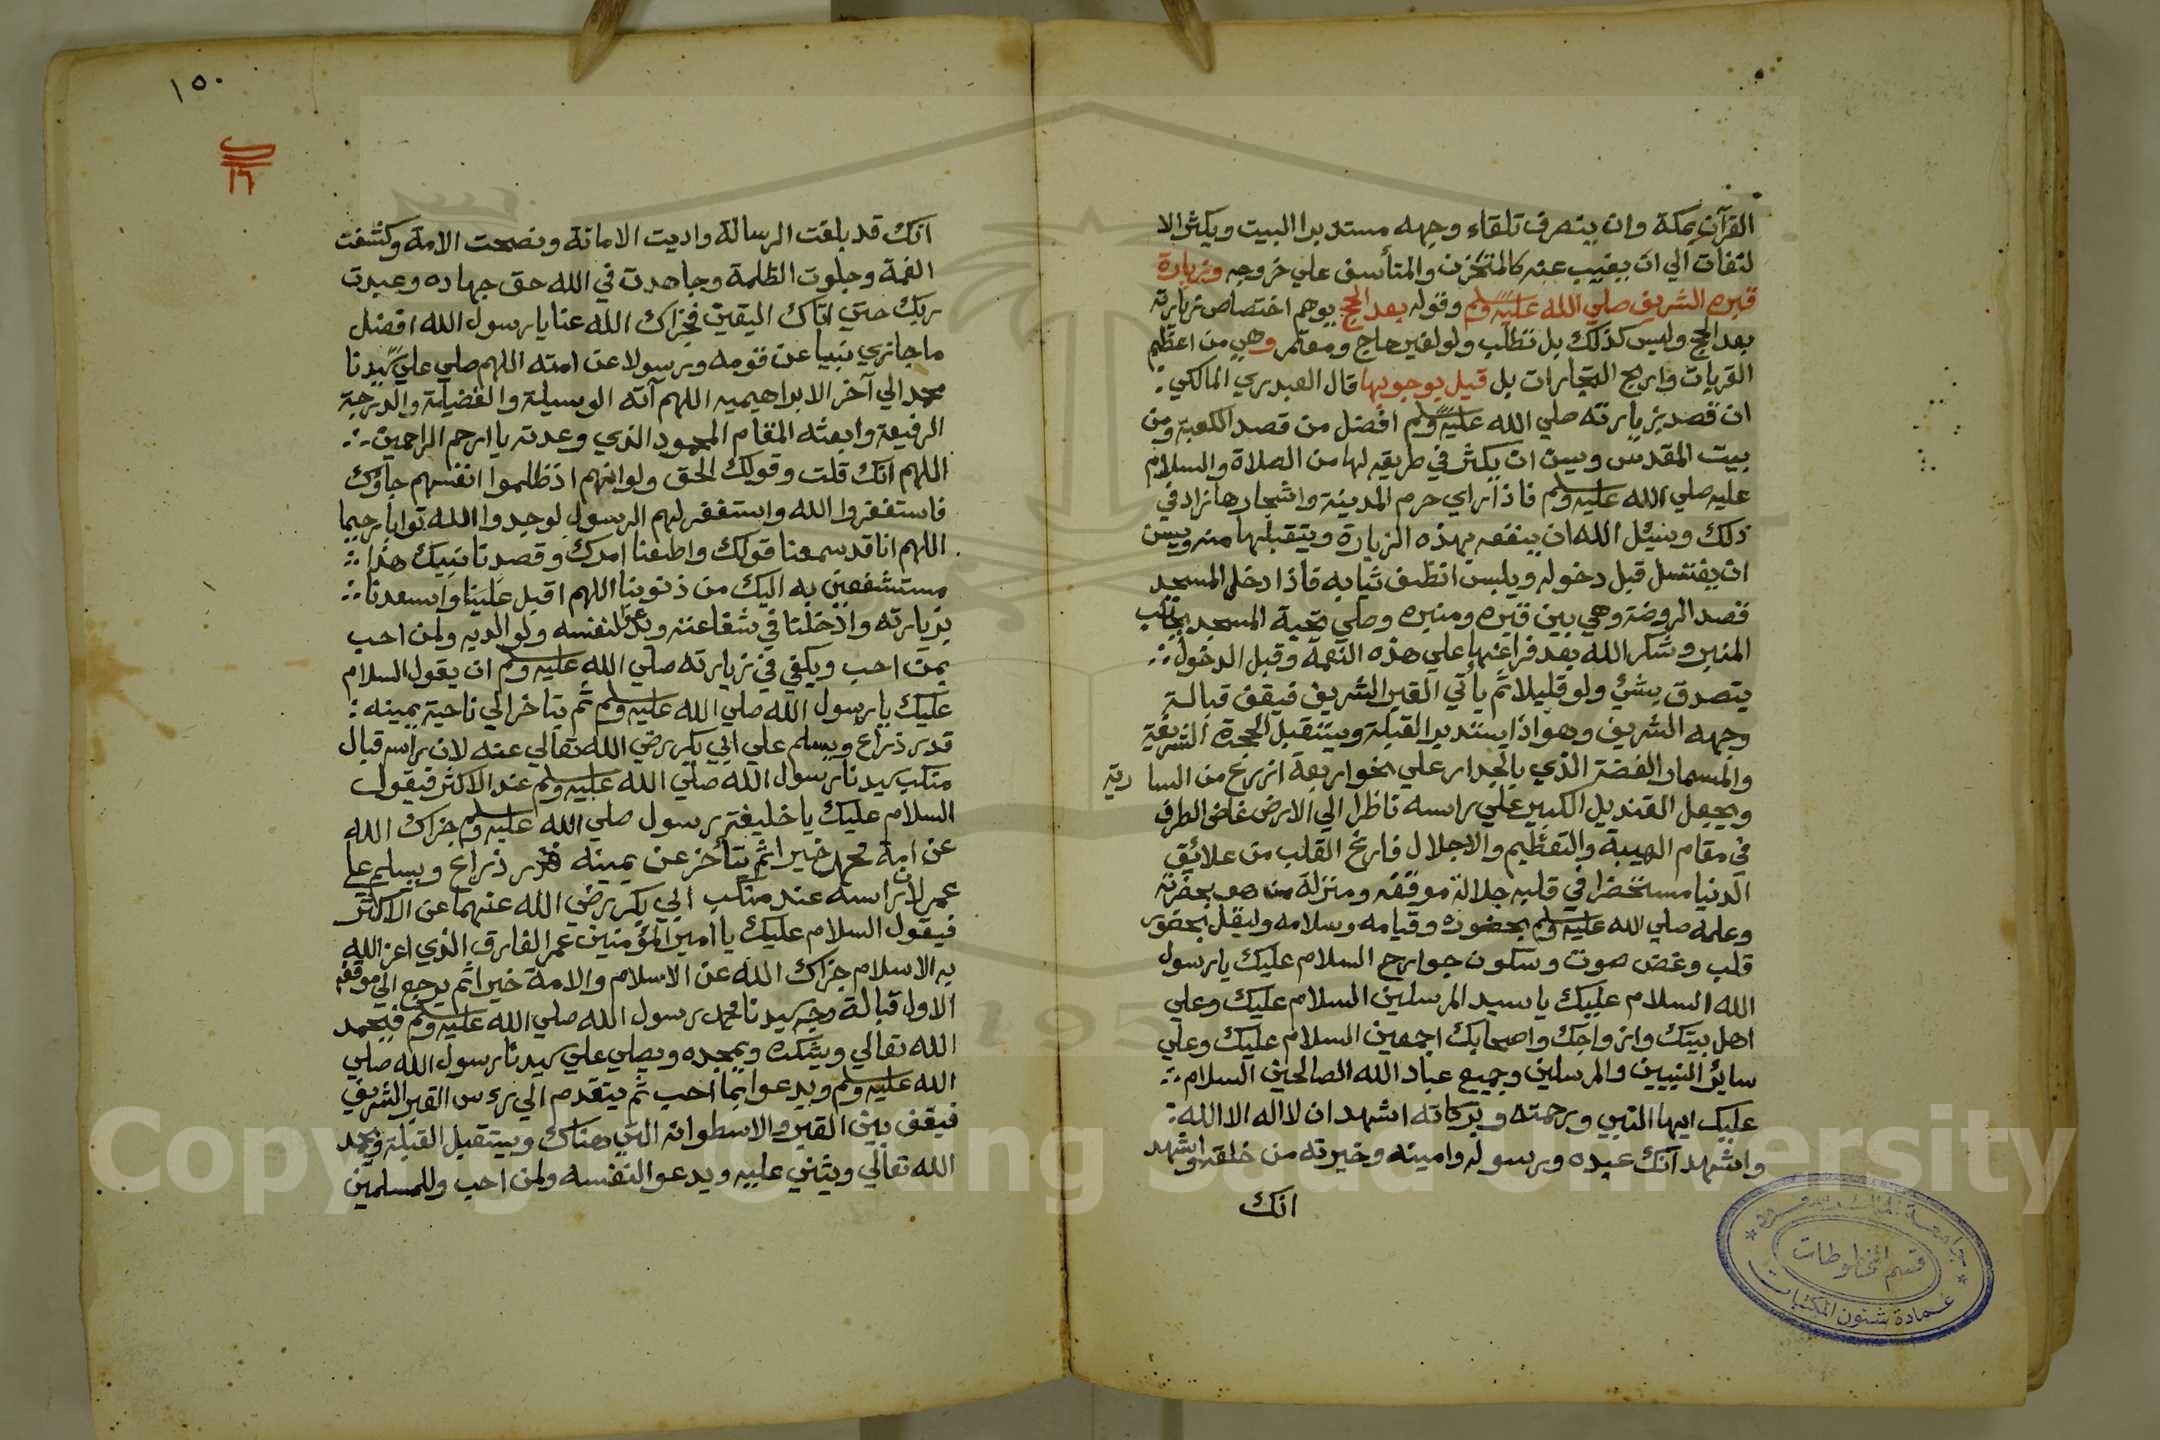 القرآن بمكة وان ينصرف تلقاء وجهه مستدبرا البيت ويكثر الا
لتفات الي ان يغيب عنه كالمتحزن والمتأسف علي خروجه وزيارة
قبره الشريف صلي الله عليه وسلم وقوله بعد الحج يوهم اختصاص زيارته
بعد الحج وليس كذلك بل تطلب ولو لغير حاج ومعتمر وهي من اعظم
القربات واربح التجارات بل قيل بوجوبها قال العبدري المالكي :
ان قصد زيارته صلي الله عليه وسلم افضل من قصد الكعبة ومن
بيت المقدس وسن ان يكثر في طريقه لها من الصلاة والسلام
عليه صلي الله عليه وسلم فاذا راي حرم المدينة واشجارها زاد في
ذلك ويسئل الله ان ينفعه بهذه الزيارة ويتقبلها منه ويسن
ان يغتسل قبل دخوله ويلبس انظف ثيابه فاذا دخل المسجد
قصد الروضة وهي بين قبره ومنبره وصلي تحية المسجد بجانب
المنبر وشكر الله بعد فراغها علي هذه النعمة وقبل الدخول ∴
يتصدق بشئ ولو قليلا ثم يأتي القبر الشريف فيقف قبالة
وجهه الشريف وهو اذا يستدبر القبلة ويستقبل الحجرة الشريفة
والمسمار الفضة الذي بالجدار علي نحو اربعة اذرع من السا رية
ويجعل القنديل الكبير علي راسه ناظرا الي الارض غاض الطرف
في مقام الهيبة والتعظيم والاجلال فارغ القلب من علائق
الدنيا مستحضرا في قلبه جلالة موقفه ومنزلة من هو بحضرته
وعلمه صلي الله عليه وسلم بحضوره وقيامه وسلامه وليقل بحضور
قلب وغض صوت وسكون جوارح السلام عليك يا رسول
الله السلام عليك يا سيد المرسلين السلام عليك وعلي
اهل بيتك وازواجك واصحابك اجمعين السلام عليك وعلي
سائر النبيين والمرسلين وجميع عباد الله الصالحين السلام ∴
عليك ايها النبي ورحمته وبركاته اشهد ان لا اله الا الله :
واشهد انك عبده ورسوله وامينه وخيرته من خلقه واشهد
انك
١٥٠
١٦
انك قد بلغت الرسالة واديت الامانة ونصحت الامة وكشفت
الغمة وجلوت الظلمة وجاهدت في الله حق جهاده وعبدت
ربك حتي اتاك اليقين فجزاك الله عنا يا رسول الله افضل
ما جازي نبيا عن قومه ورسولا عن امته اللهم صلي علي سيدنا
محمد الي آخر الابراهيميه اللهم آته الوسيلة والفضيلة والدرجة
الرفيعة وابعثه المقام المحمود الذي وعدته يا ارحم الراحمين ∴
اللهم انك قلت وقولك الحق ولو انهم اذ ظلموا انفسهم جاؤك
فاستغفروا الله واستغفر لهم الرسول لوجدوا الله توابا رحيما
اللهم انا قد سمعنا قولك واطعنا امرك وقصدنا نبيك هذا ∴
مستشفعين به اليك من ذنوبنا اللهم اقبل علينا واسعدنا ∴
بزيارته وادخلنا في شفاعته ويدعو لنفسه ولوالديه ولمن احب
بمن احب ويكفي في زيارته صلي الله عليه وسلم ان يقول السلام
عليك يا رسول الله صلي الله عليه وسلم ثم يتاخر الي ناحية يمينه :
قدر ذراع ويسلم علي ابي بكر رضي الله تعالي عنه لان راسه قبال
منكب سيدنا رسول الله صلي الله عليه وسلم عند الاكثر فيقول
السلام عليك يا خليفة رسول صلي الله عليه وسلم جزاك الله
عن امة محمد خيرا ثم يتأخر عن يمينه قدر ذراع ويسلم علي
عمر لان راسه عند منكب ابي بكر رضي الله عنهما عن الاكثر
فيقول السلام عليك يا امير المؤمنين عمر الفارق الذي اعز الله
به الاسلام جزاك الله عن الاسلام والامة خيرا ثم يرجع الي موقفه
الاول قبالة وجه سيدنا محمد رسول الله صلي الله عليه وسلم فيحمد
الله تعالي ويشكره ويمجده ويصلي علي سيدنا رسول الله صلي
الله عليه وسلم ويدعوا بما احب ثم يتقدم الي رءس القبر الشريف
فيقف بين القبر والاسطوانه التي هناك ويستقبل القبلة ويحمد
الله تعالي ويثني عليه ويدعو النفسه ولمن احب وللمسلمين
جامعة الملك سعود
قسم المخطوطات
عمادة شئون المكتبات
195
Copyright © King Saud University